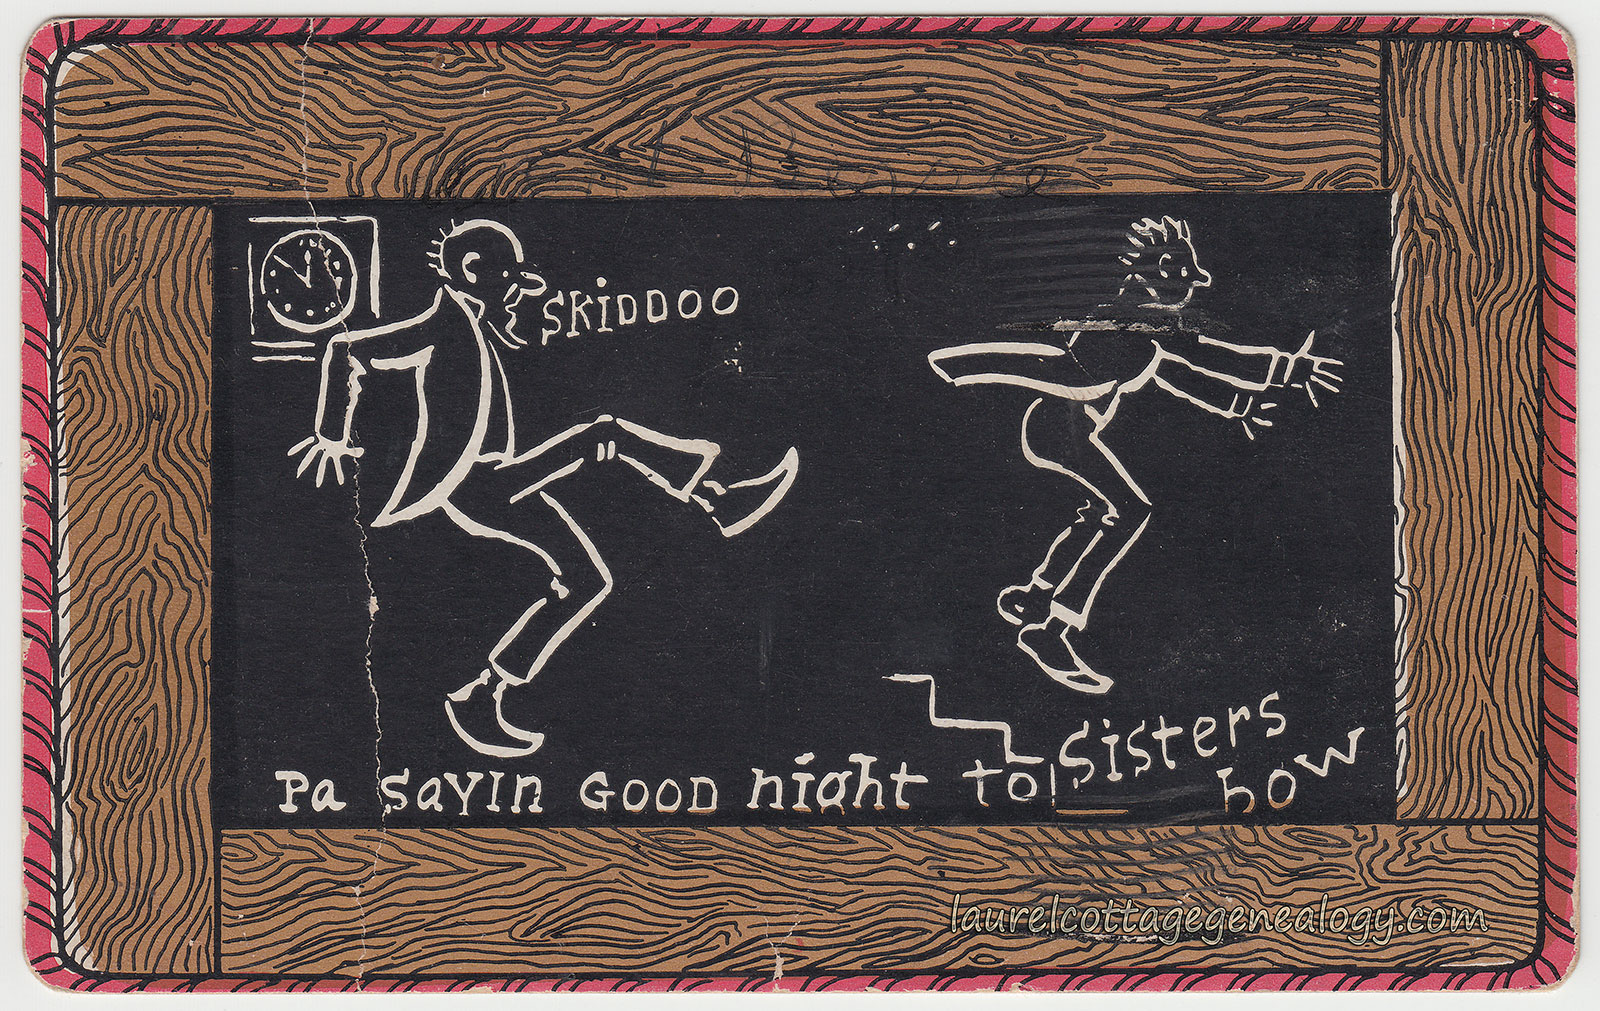 SKiDDOO
Pa SAYIN GOOD night to Sisters
bow
laurelcottagegenealogy.com